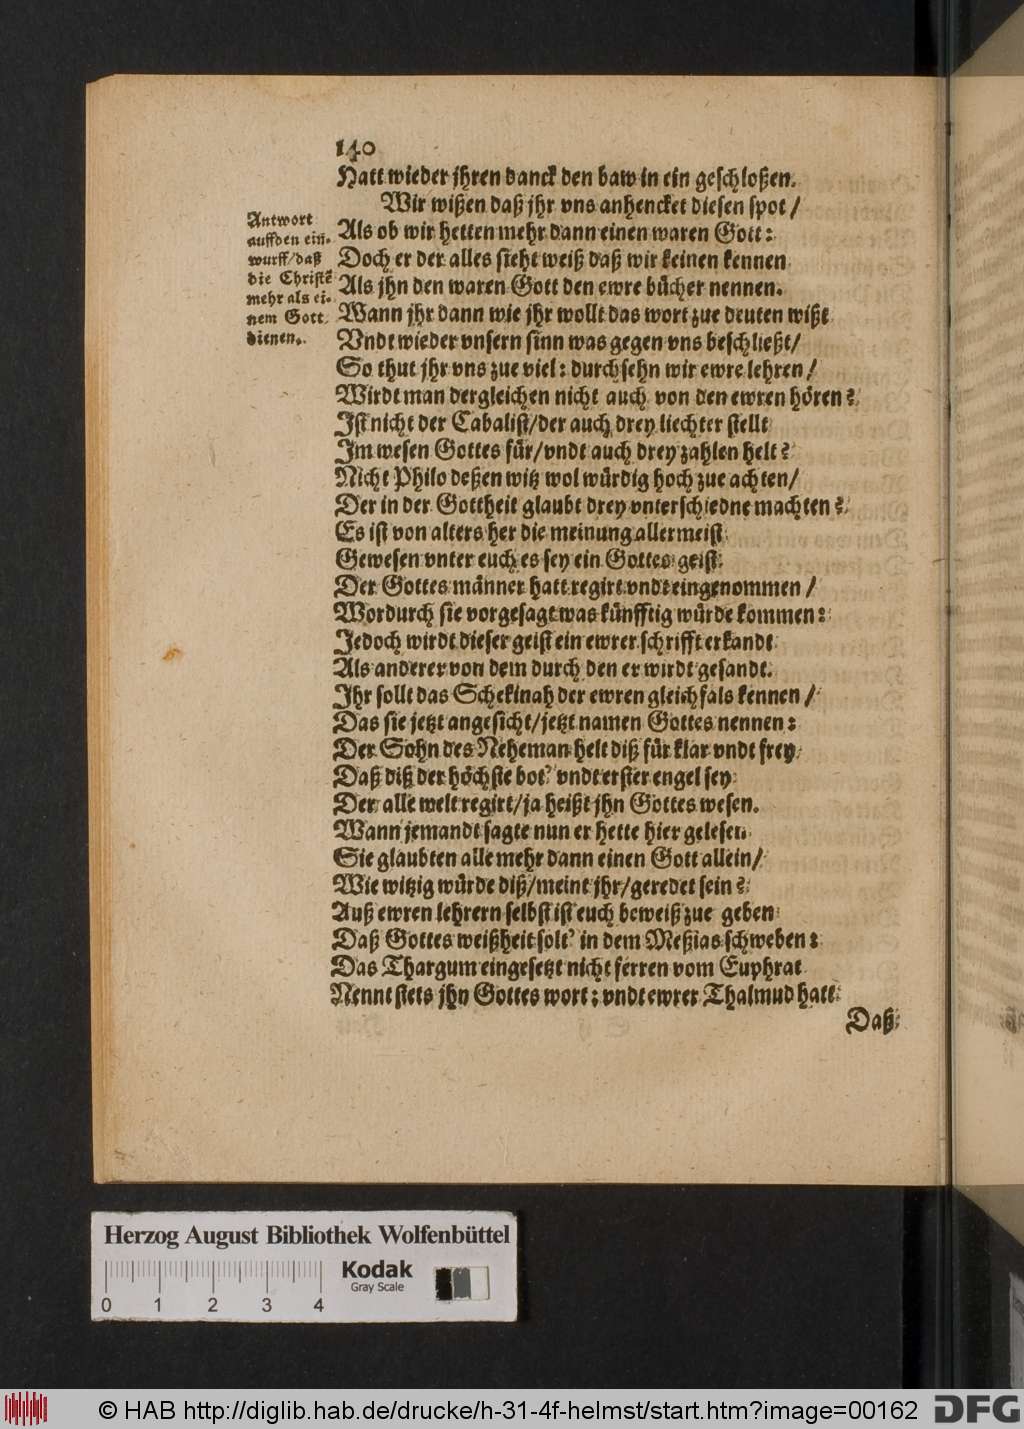 140
Hatt wieder jhren danck den baw in ein geschloßen.
Wir wißen daß jhr vns anhencket diesen spot /
Antwort
auff den ein-
wurff/daß
die Christē
mehr als ei-
nem Gott
dienen.
Als ob wir hetten mehr dann einen waren Gott:
Doch er der alles sieht weiß daß wir keinen kennen
Als jhn den waren Gott den ewre bücher nennen.
Wann jhr dann wie jhr wollt das wort zue deuten wißt
Vndt wieder vnsern sinn was gegen vns beschließt/
So thut jhr vns zue viel: durchsehn wir ewre lehren/
Wirdt man dergleichen nicht auch von den ewren hören?
Ist nicht der Cabalist/der auch drey liechter stellt
Im wesen Gottes für/vndt auch drey zahlen helt?
Nicht Philo deßen witz wol würdig hoch zue achten/
Der in der Gottheit glaubt drey vnterschiedne machten?
Es ist von alters her die meinung allermeist
Gewesen vnter euch es sey ein Gottes geist
Der Gottes männer hatt regirt vndt eingenommen /
Wordurch sie vorgesagt was künfftig würde kommen:
Jedoch wirdt dieser geist ein ewrer schrifft erkandt
Als anderer von dem durch den er wirdt gesandt.
Ihr sollt das Schekinah der ewren gleichfals kennen /
Das sie jetzt angesicht/jetzt namen Gottes nennen:
Der Sohn des Neheman helt diß für klar vndt frey
Daß diß der höchste bot' vndt erster engel sey
Der alle welt regirt/ja heißt jhn Gottes wesen.
Wann jemandt sagte nun er hette hier gelesen
Sie glaubten alle mehr dann einen Gott allein/
Wie witzig würde diß/meint jhr/geredet sein?
Auß ewren lehrern selbst ist euch beweiß zue geben
Daß Gottes weißheit solt' in dem Meßias schweben:
Das Thargum eingesetzt nicht ferren vom Euphrat
Nennt stets jhn Gottes wort; vndt ewrer Thalmud hatt
Daß
Herzog August Bibliothek Wolfenbüttel
Kodak
Gray Scale
0 1 2 3 4
© HAB http://diglib.hab.de/drucke/h-31-4f-helmst/start.htm?image=00162
DFG